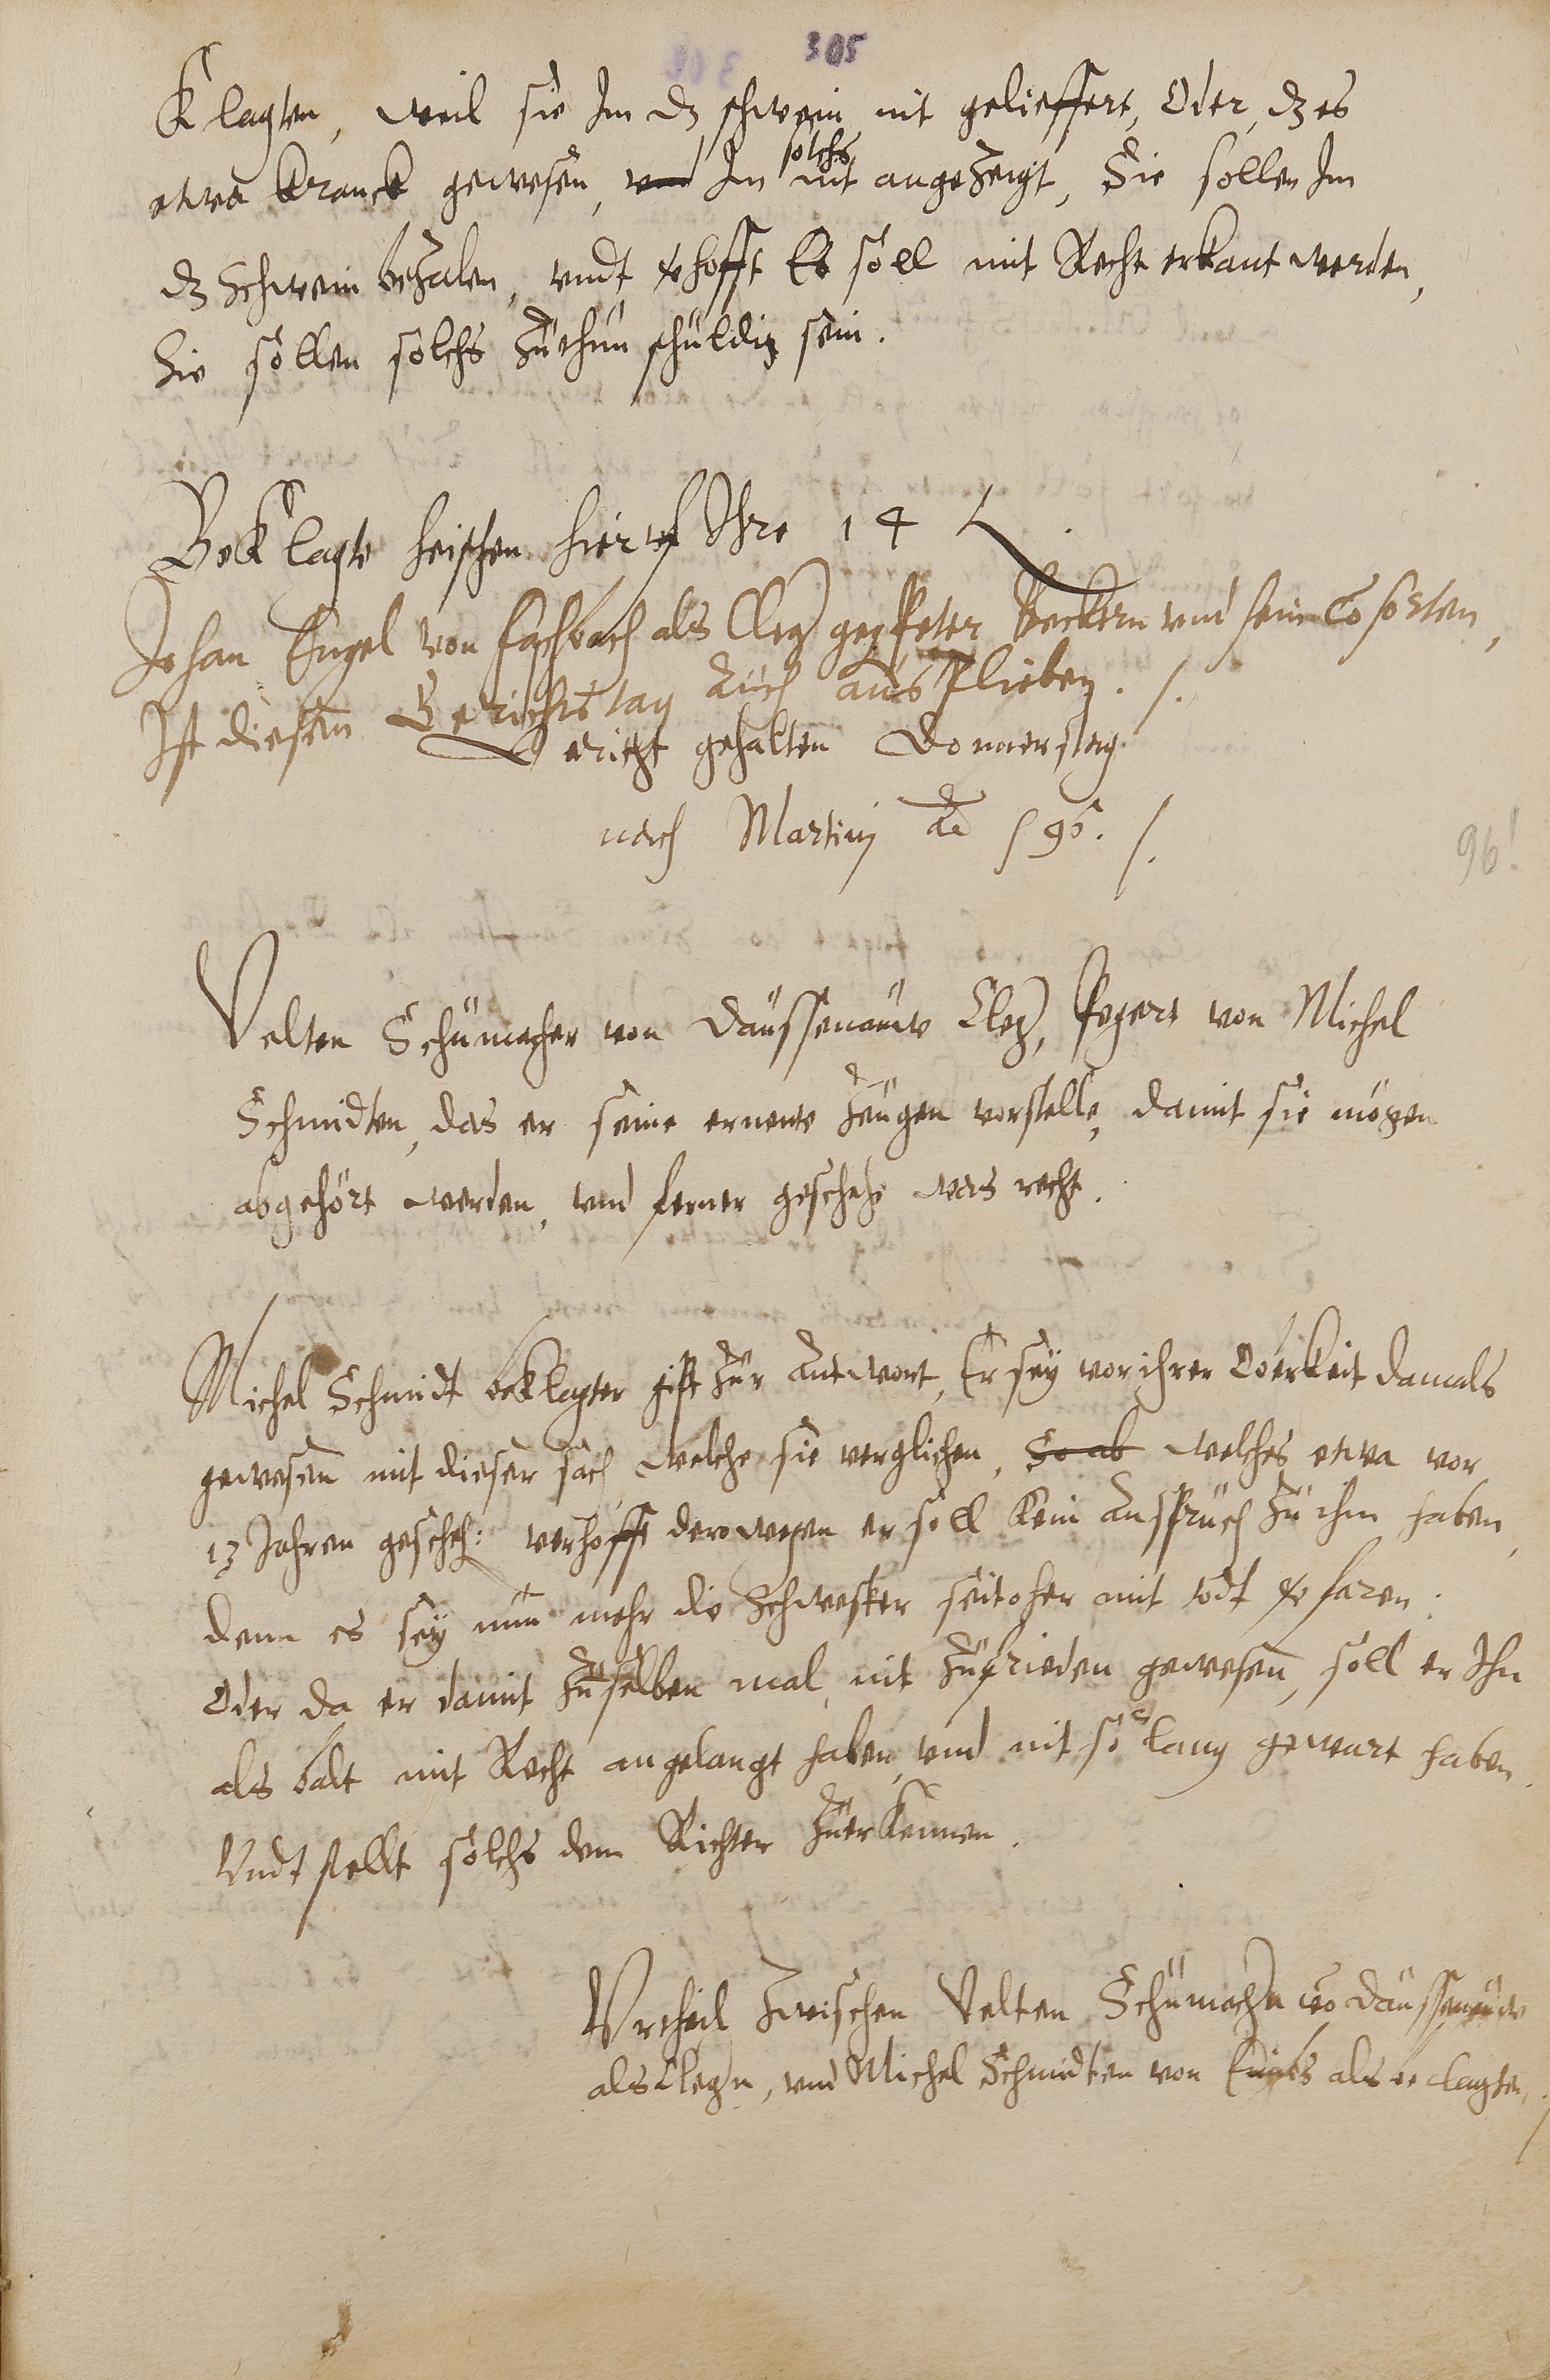 305
Klagten, weil sie Im dz schwein nit gelieffert, Oder, dz es
etwa kranck gewesen, vnd Im solchs nit angezeigt, Sie sollen Im
dz Schwein bezalen, vndt verhofft Es soll mit Recht erkant werden,
Sie sollen solchs zuthun schuldig sein.
Beklagte heischen hieruf Ihre 14
Johan Engel von Fachbach als Cleg. geg. Peter Beckern vnd sein Cosorten,
Ist diesen Gerichtstag auch ausplieben. /.
Gericht gehalten Donnerstag
nach Martinj Ao 596. /.
96!
Velten Schumacher von Daussenauw Cleg., begert von Michel
Schmidten, das er seine ernente Zeugen vorstelle, damit sie mögen
abgehört werden, vnd ferner geschehe was recht.
Michel Schmidt beklagter gibt zur Antwort, Er sey vor ihrer Oberkeit damals
gewesen mit dieser sach, welche sie verglichen, So ab welches etwa vor
13 Jahren gescheh: verhofft derowegen er soll kein Anspruch zu ihm haben,
denn es sey nun mehr die Schwester seithero mit todt verfaren.
Oder da er damit zuselben mal, nit zufrieden gewesen, soll er Ihn
als balt mit Recht angelangt haben, vnd nit so lang gewart haben.
Vndt stellt solchs dem Richter zuerkennen.
Vrtheil zwischen Velten Schumachern vo Daussenauw
als Clegern, vnd Michel Schmidten von Embs als beclagten, /